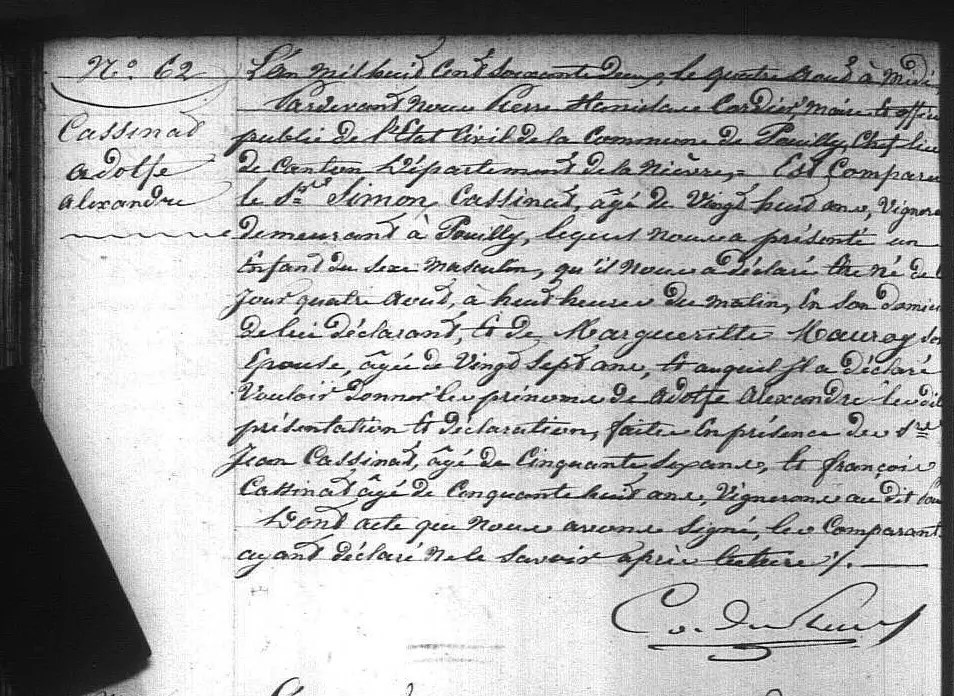 N.º 62
Cassinat
Adolfe
Alexandre
L'An Mil huit Cent Soixante Deux, le quatre Aout à Midi
Pardevant Nous Pierre Stanislas Cordier, Maire et offici
public de l'Etat Civil de la Commune de Pouilly, Chef lieu
de Canton Département de la Nièvre, Est Comparu
le Sr. Simon Cassinat, âgé de Vingt huit ans, Vigneron
demeurant à Pouilly, lequel Nous a présenté un
Enfant du sexe Masculin, qu'il Nous a déclaré être né de
Jour quatre Aout, à huit heures du matin, En son domici
de lui déclarant, et de Margueritte Mauroy son
Epouse, âgée de Vingt Sept ans, et auquel Il a déclaré
Vouloir donner les prénoms de Adolfe Alexandre les dit
présentation et déclaration, faites En présence des Srs
Jean Cassinat, âgé de Cinquante Six ans, et françois
Cassinat, âgé de Cinquante huit ans, Vignerons au dit
Dont acte que Nous avons Signé, les Comparant
ayant déclaré Ne le Savoir après lecture /.